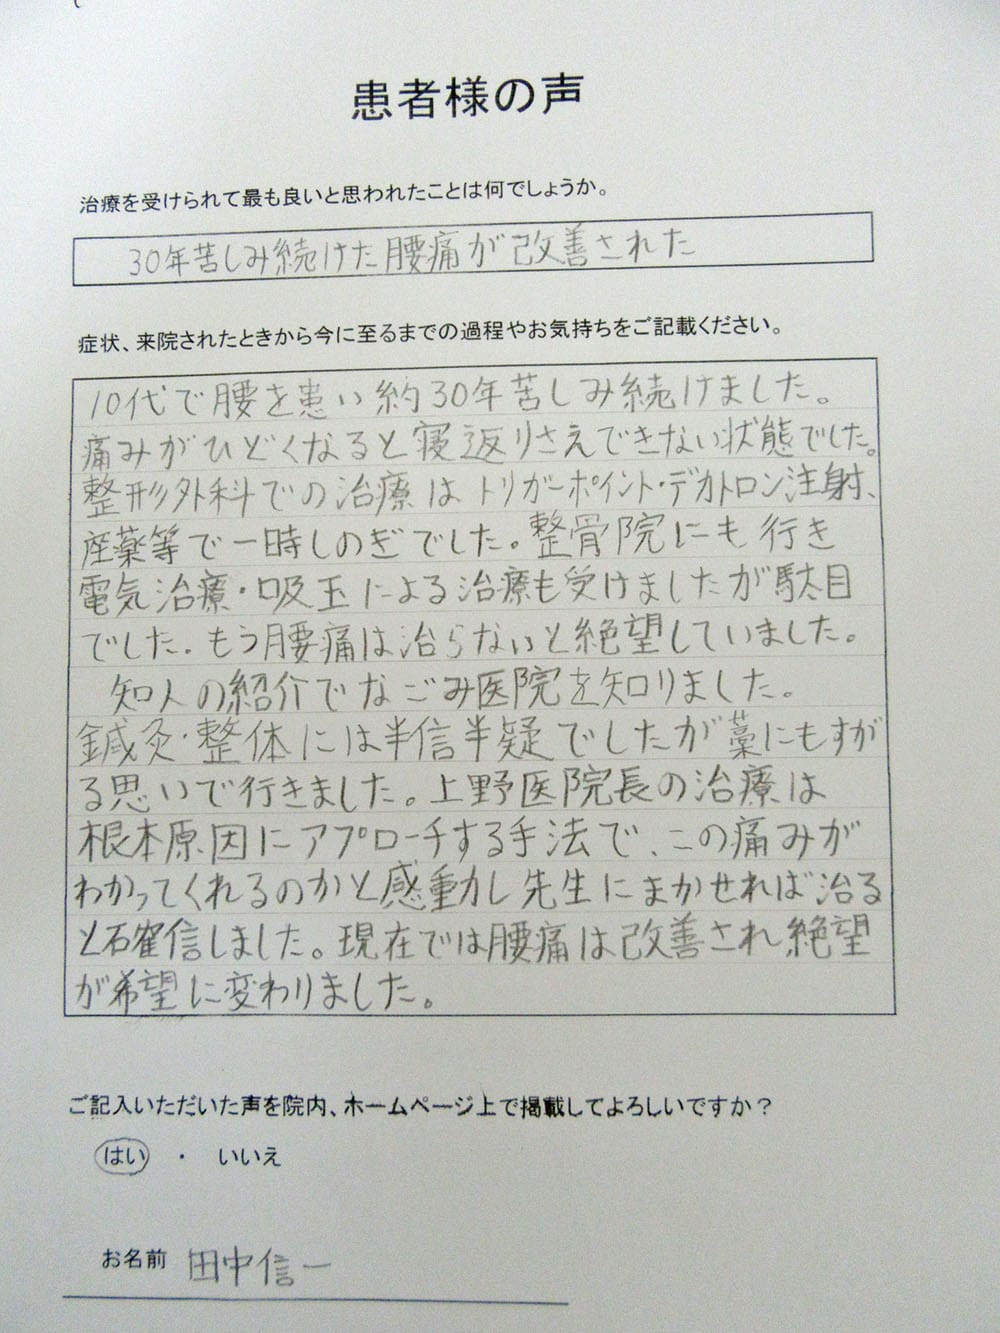 患者様の声
治療を受けられて最も良いと思われたことは何でしょうか。
30年苦しみ続けた腰痛が改善された
症状、来院されたときから今に至るまでの過程やお気持ちをご記載ください。
10代で腰を患い約30年苦しみ続けました。
痛みがひどくなると寝返りさえできない状態でした。
整形外科での治療はトリガーポイント・デカトロン注射、
座薬等で一時しのぎでした。整骨院にも行き
電気治療・吸玉による治療も受けましたが駄目
でした。もう腰痛は治らないと絶望していました。
知人の紹介でなごみ医院を知りました。
鍼灸・整体には半信半疑でしたが藁にもすが
る思いで行きました。上野医院長の治療は
根本原因にアプローチする手法で、この痛みが
わかってくれるのかと感動し先生にまかせれば治る
と確信しました。現在では腰痛は改善され絶望
が希望に変わりました。
ご記入いただいた声を院内、ホームページ上で掲載してよろしいですか？
はい ・ いいえ
お名前 田中信一